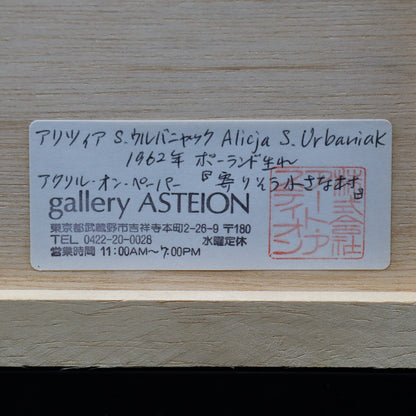 アリツィア S.ウルバニャック Alicja S. Urbaniak
1962年 ポーランド生れ
アクリル・オン・ペーパー 『寄りそう小さな村』
gallery ASTEION
東京都武蔵野市吉祥寺本町2-26-9 〒180
TEL 0422-20-0028 水曜定休
営業時間 11:00AM〜7:00PM
株式会社
アートァ
スティオン